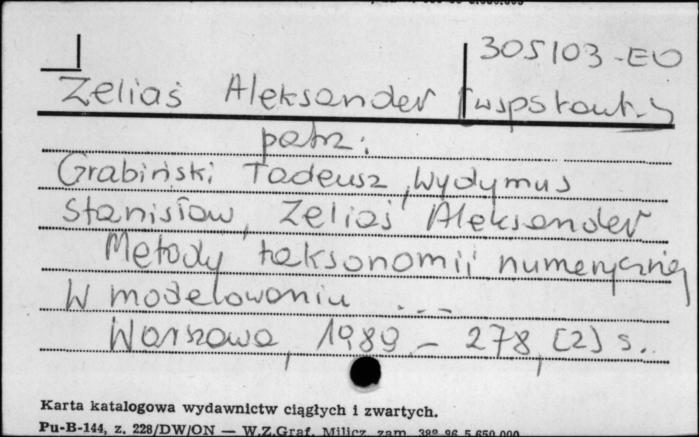 305103-EO
Zeliaś Aleksander [wspstaut.]
patrz:
Grabiński Tadeusz, Wydymus
Stanisław, Zeliaś Aleksander
Metody taksonomii numerycznej
w modelowaniu ...
Warszawa, 1989 - 278, [2] s.
Karta katalogowa wydawnictw ciągłych i zwartych.
Pu-B-144, z. 228/DW/ON — W.Z.Graf. Milicz, zam. 382 96 5.650.000